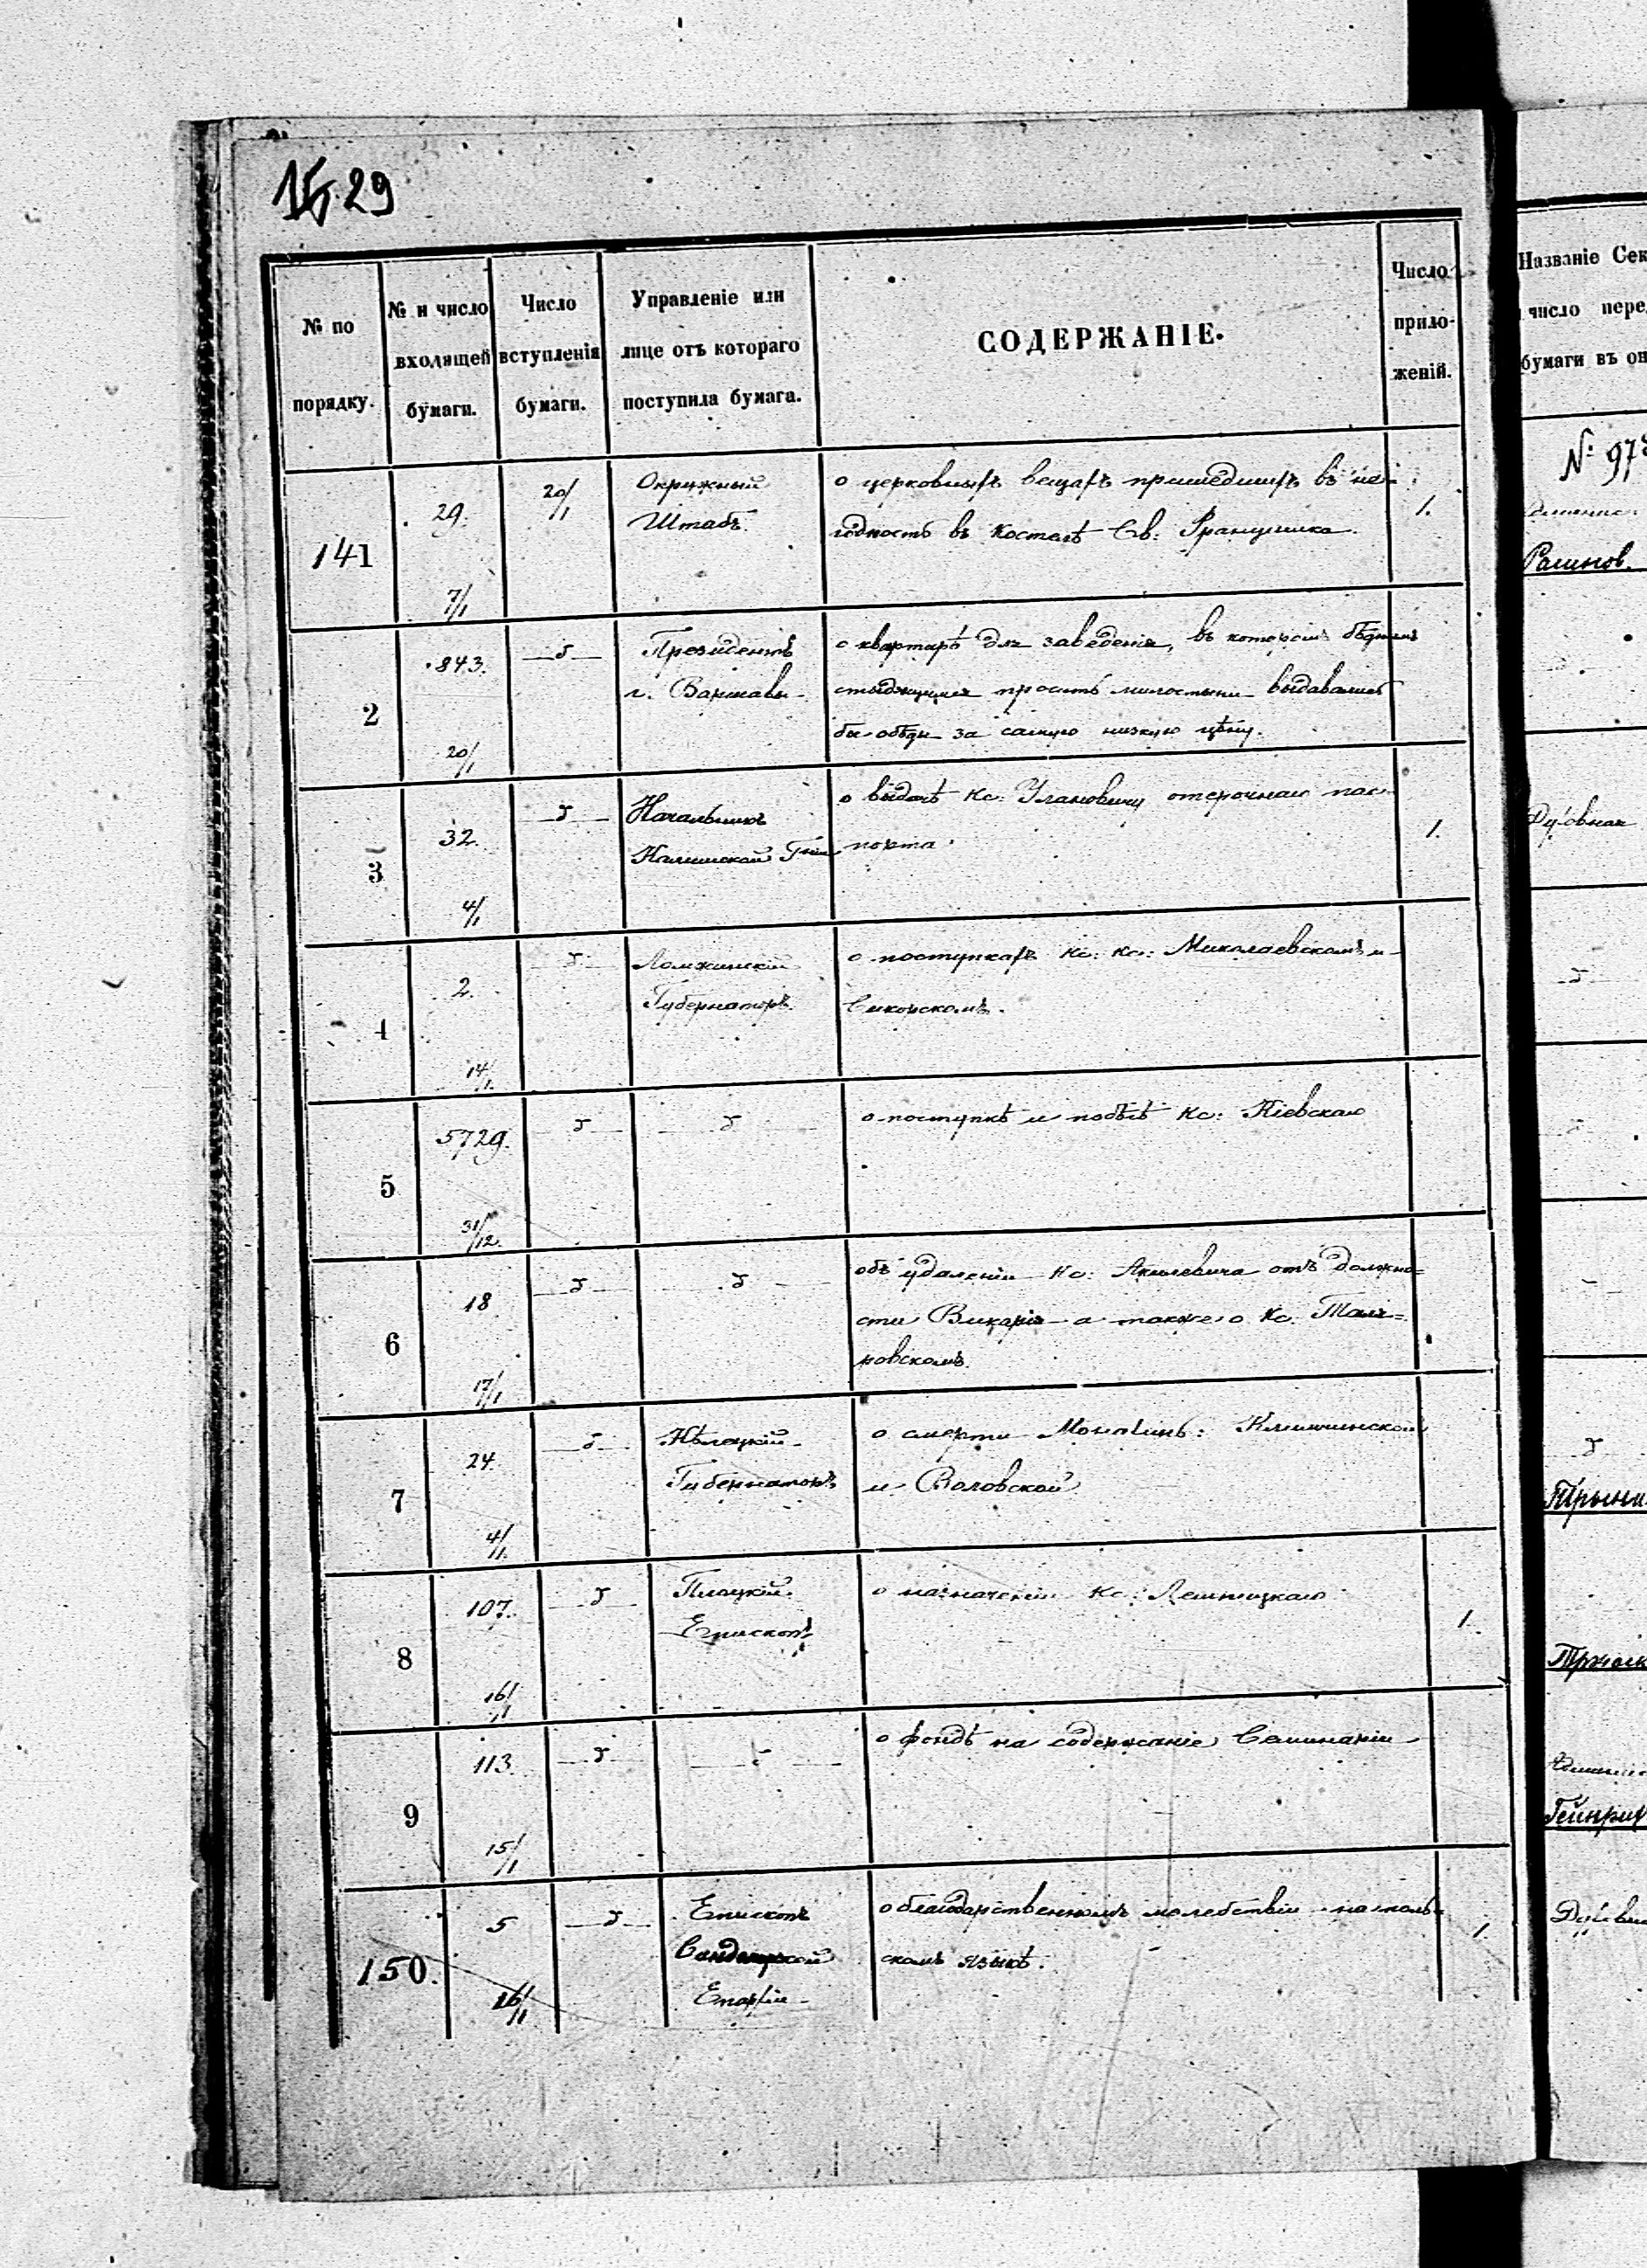 15. 29
№ по порядку.
№ и число входящей бумаги.
Число вступленія бумаги.
Управленіе или лице отъ котораго поступила бумага.
СОДЕРЖАНІЕ.
Число приложеній.
141
29.
7/1
20/1
Окружный
Штабъ.
о церковныхъ вещахъ пришедшихъ въ не-
годность въ костелѣ Св: Францишка.
1.
2
843.
20/1
Президентъ
г. Варшавы
о квартирѣ для заведенія, въ которомъ бѣднымъ
стыдящимся просить милостыни выдавались
бы обѣды за самую низкую цѣну.
3
32.
4/1
Начальникъ
Калишской
о выдачѣ Кс: Улановичу отсрочнаго пас-
порта.
1.
4
2.
14/1.
Ломжинскій
Губернаторъ.
о поступкахъ Кс: Кс: Миколаевскомъ и
Сикорскомъ.
5
5729.
31/12.
о поступкѣ и побѣгѣ Кс: Кіевскаго
6
18
17/1
объ удаленіи Кс: Акилевича отъ должно=
сти Викарія а также о Кс.
новскомъ.
7
24.
4/11.
Кѣлецкій
Губернаторъ
о смерти Монахинь:
и Воловской
8
107.
16/1
Плоцкій
Епископъ
о назначеніи Кс:
1.
9
113.
15/1
о фондѣ на содержаніе Семинаріи
150.
5
16/1
Епископъ
Сандомірской
Епархіи
о благодарственномъ молебствіи на поль-
скомъ языкѣ.
1.
Названіе Сек
число пере
бумаги въ он
№ 97
Духовная
Гейнрих